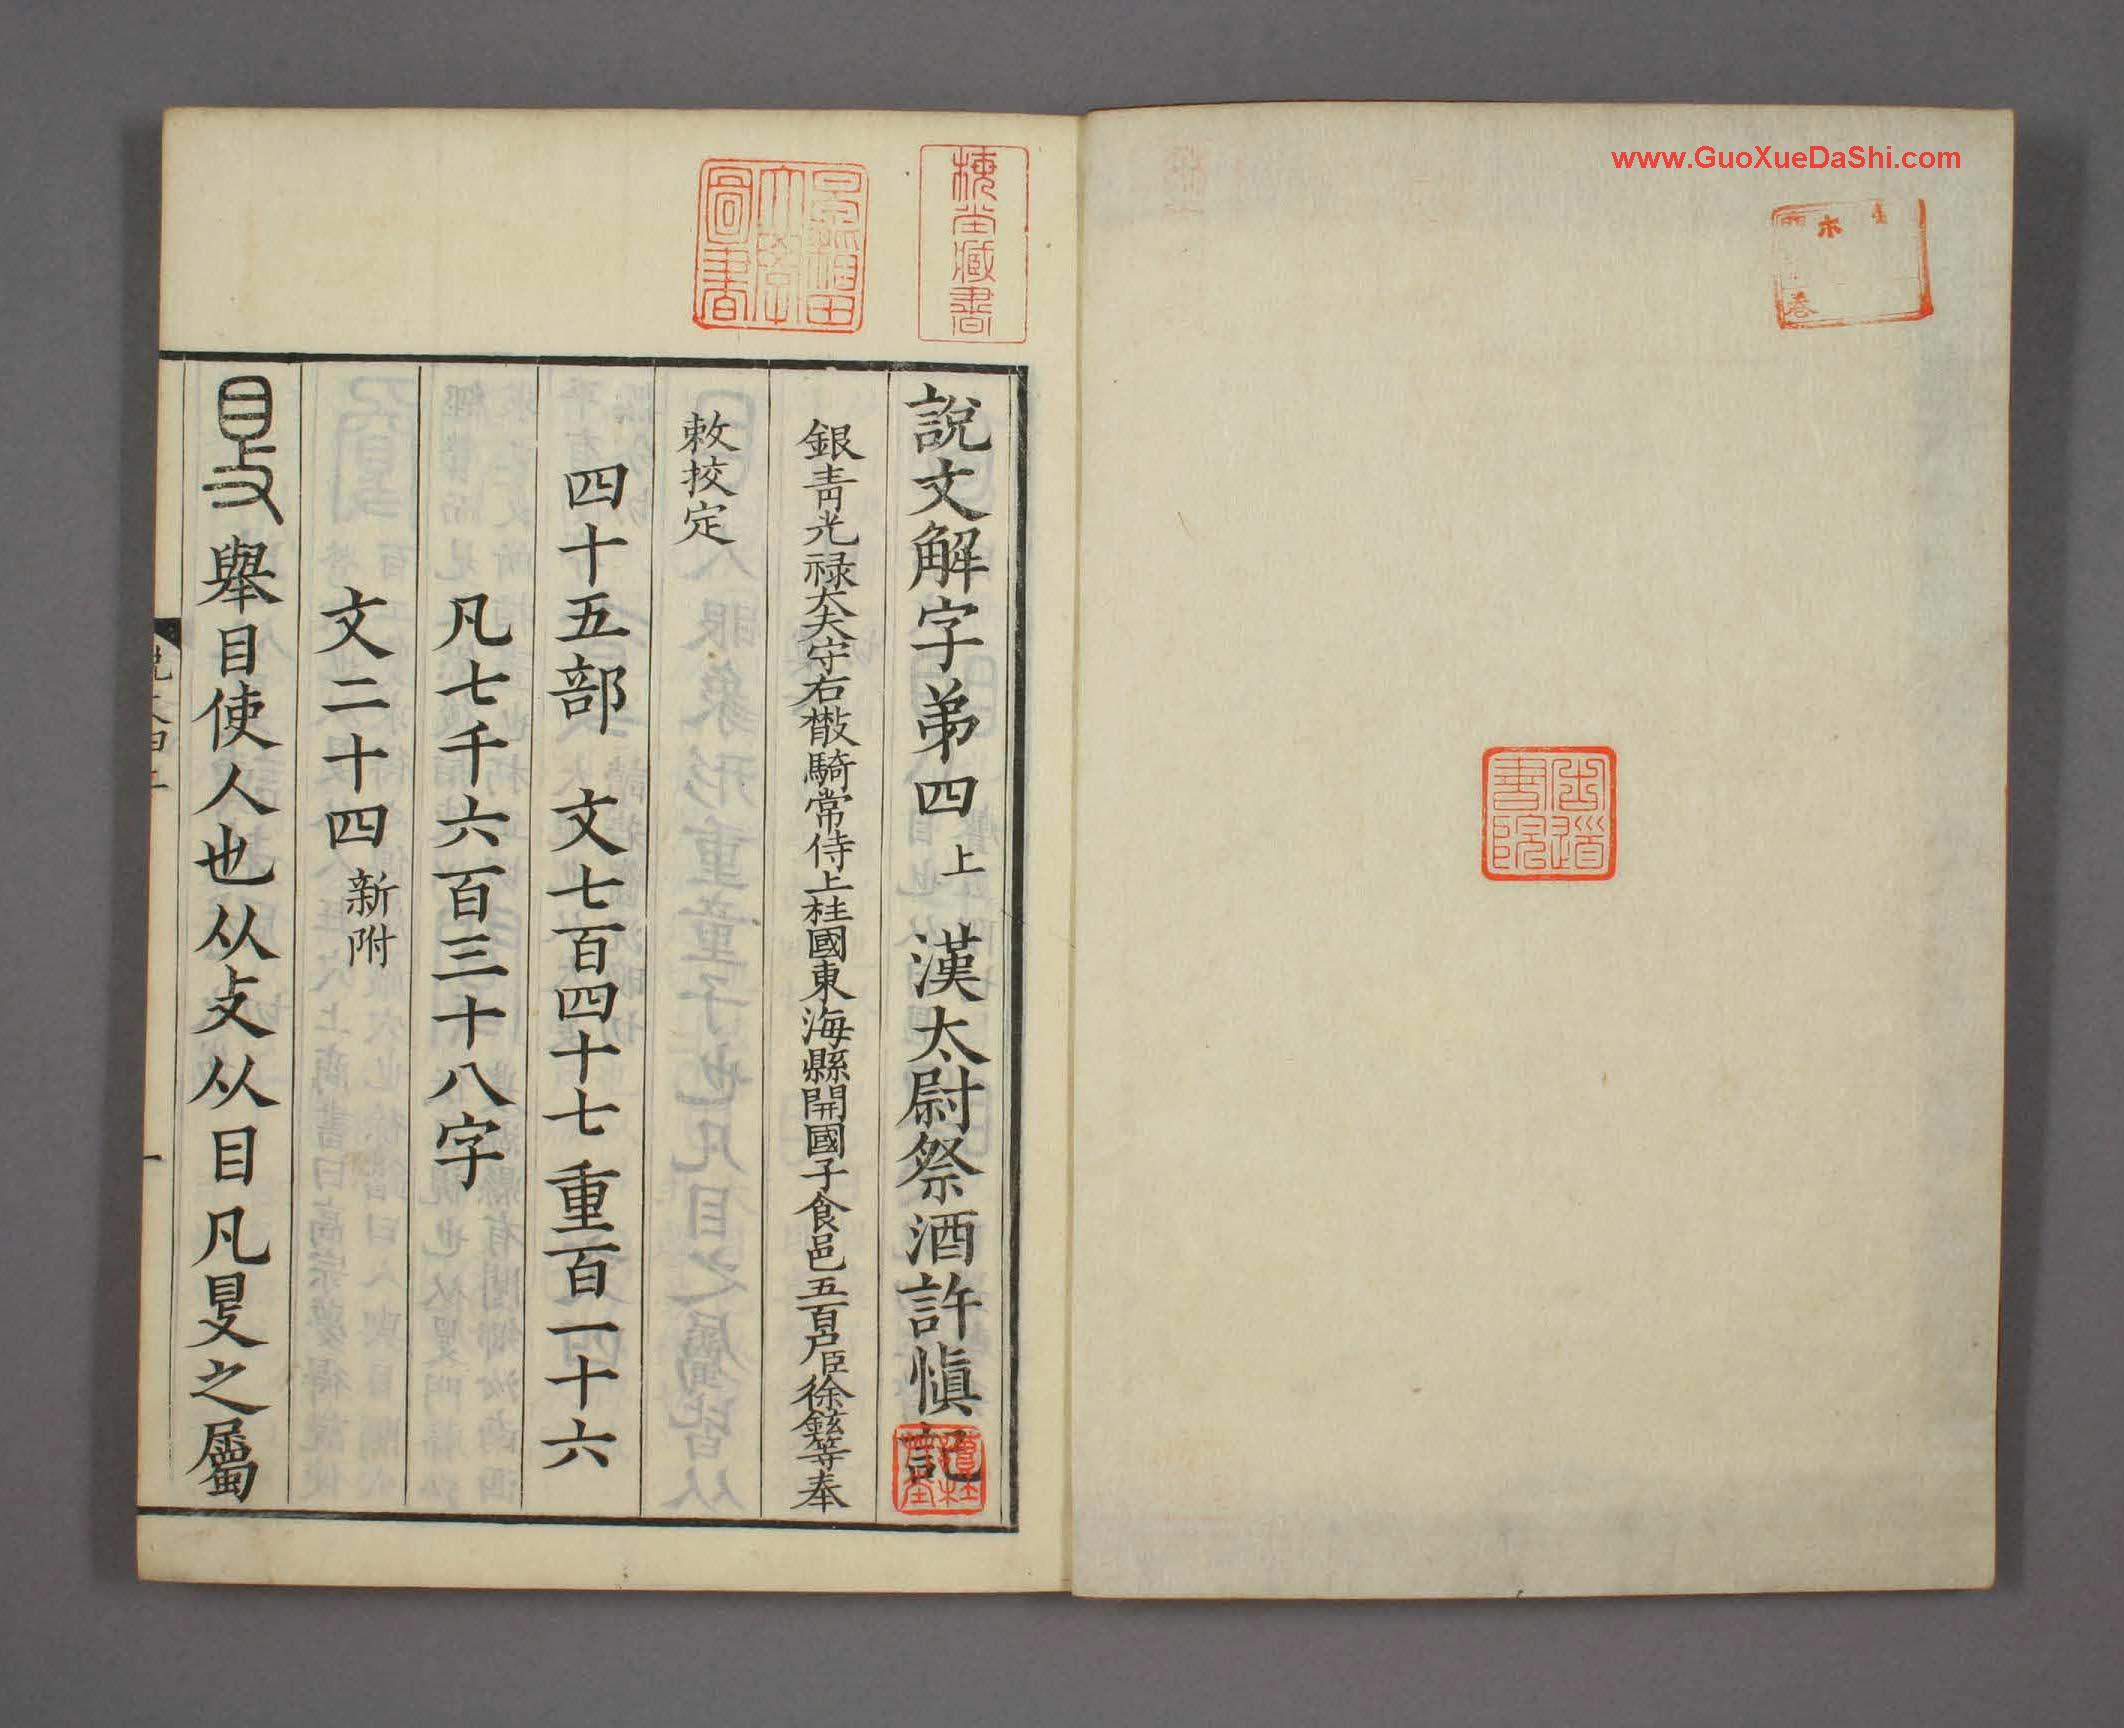 www.GuoXueDaShi.com
梅堂藏書
早稲田大學圖書
說文解字弟四上 漢太尉祭酒許慎記
銀青光禄大夫守右散騎常侍上柱國東海縣開國子食邑五百户臣徐鉉等奉
敕挍定
四十五部 文七百四十七 重百一十六
凡七千六百三十八字
文二十四新附
𥄎 舉目使人也从攴从目凡𥄎之屬